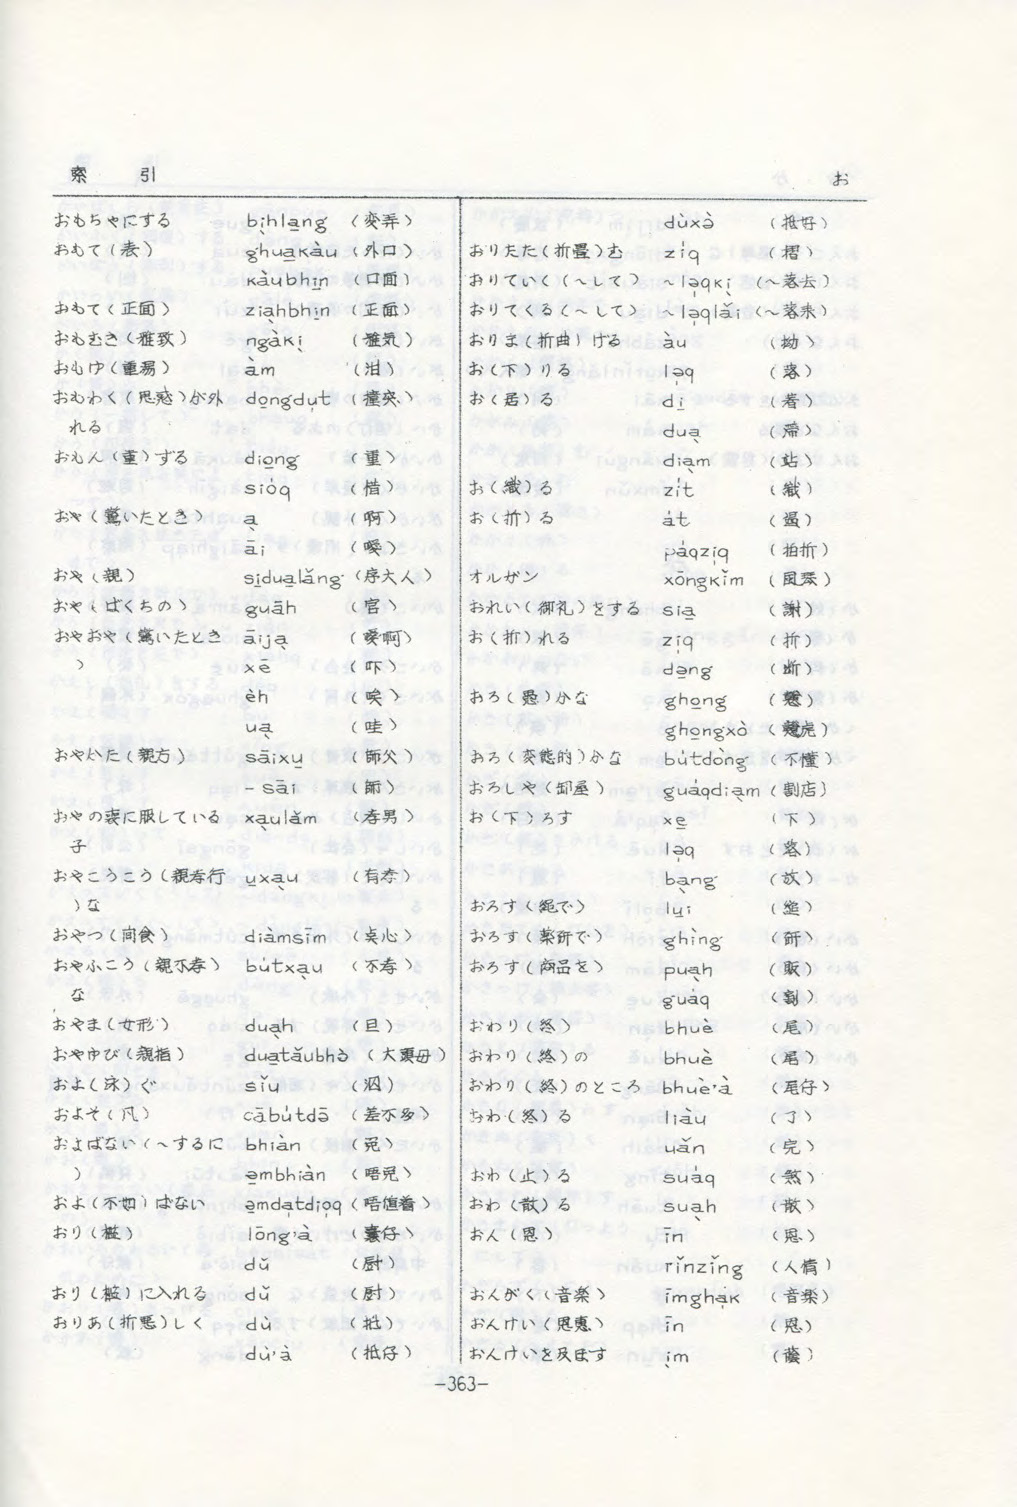 索 引
お
おもちゃにする bi̠hla̠ng (変弄)
おもて(表) ghua̠kàu (外口)
kàubhi̠n (口面)
おもて(正面) zia̠hbhi̠n (正面)
おもむき(雅致) ngàkị (雅気)
おもゆ(重湯) àm (泔)
おもわく(思惑)が外 do̠ngdụt (撞突)
れる
おもん(重)ずる dio̠ng (重)
siȯq (惜)
おや(驚いたとき) ạ (啊)
āi (噯)
おや(親) si̠dua̠lǎng (序大人)
おや(ばくちの) guāh (官)
おやおや(驚いたとき āijạ (噯啊)
) xē (吓)
èh (唉)
uạ (哇)
おやかた(親方) sāixu̠ (師父)
-sāi (師)
おやの喪に服している xạulàm (孝男)
子
おやこうこう(親孝行 u̠xạu (有孝)
)な
おやつ(間食) diàmsīm (点心)
おやふこう(親不孝) bu̇txạu (不孝)
な
おやま(女形) duạh (旦)
おやゆび(親指) dua̠tǎubhə̀ (大頭母)
およ(泳)ぐ sǐu (泅)
およそ(凡) cābu̇tdə̄ (差不多)
およばない(~するに bhiàn (免)
) e̠mbhiàn (唔免)
およ(不如)ばない e̠mdạtdiọq (唔值着)
おり(檻) lōng'à (囊仔)
dǔ (厨)
おり(檻)に入れる dǔ (厨)
おりあ(折悪)しく dù (抵)
dù'à (抵仔)
dùxə̀ (抵好)
おりたた(折畳)む zi̇q (摺)
おりていく(~して) ~lə̣qkị (~落去)
おりてくる(~して) ~lə̣qlǎi (~落来)
おりま(折曲)げる àu (拗)
お(下)りる lə̣q (落)
お(居)る di̠ (着)
dua̠ (滞)
diạm (站)
お(織)る zi̇t (織)
お(折)る ȧt (遏)
pȧqzịq (拍折)
オルガン xōngkǐm (風琴)
おれい(御礼)をする sia̠ (謝)
お(折)れる zịq (折)
də̠ng (断)
おろ(愚)かな gho̠ng (戇)
gho̠ngxò (戇虎)
おろ(変態的)かな bu̇tdòng (不懂)
おろしや(卸屋) guȧqdiạm (割店)
お(下)ろす xe̠ (下)
lə̣q (落)
bạng (放)
おろす(縄で) lụi (縋)
おろす(薬研で) ghìng (研)
おろす(商品を) puạh (販)
guȧq (割)
おわり(終) bhuè (尾)
おわり(終)の bhuè (尾)
おわり(終)のところ bhuè'à (尾仔)
おわ(終)る liàu (了)
uǎn (完)
おわ(止)る suȧq (煞)
おわ(散)る suạh (散)
おん(恩) īn (恩)
rǐnzǐng (人情)
おんがく(音楽) īmghạk (音楽)
おんけい(恩恵) īn (恩)
おんけいを及ぼす ịm (蔭)
-363-